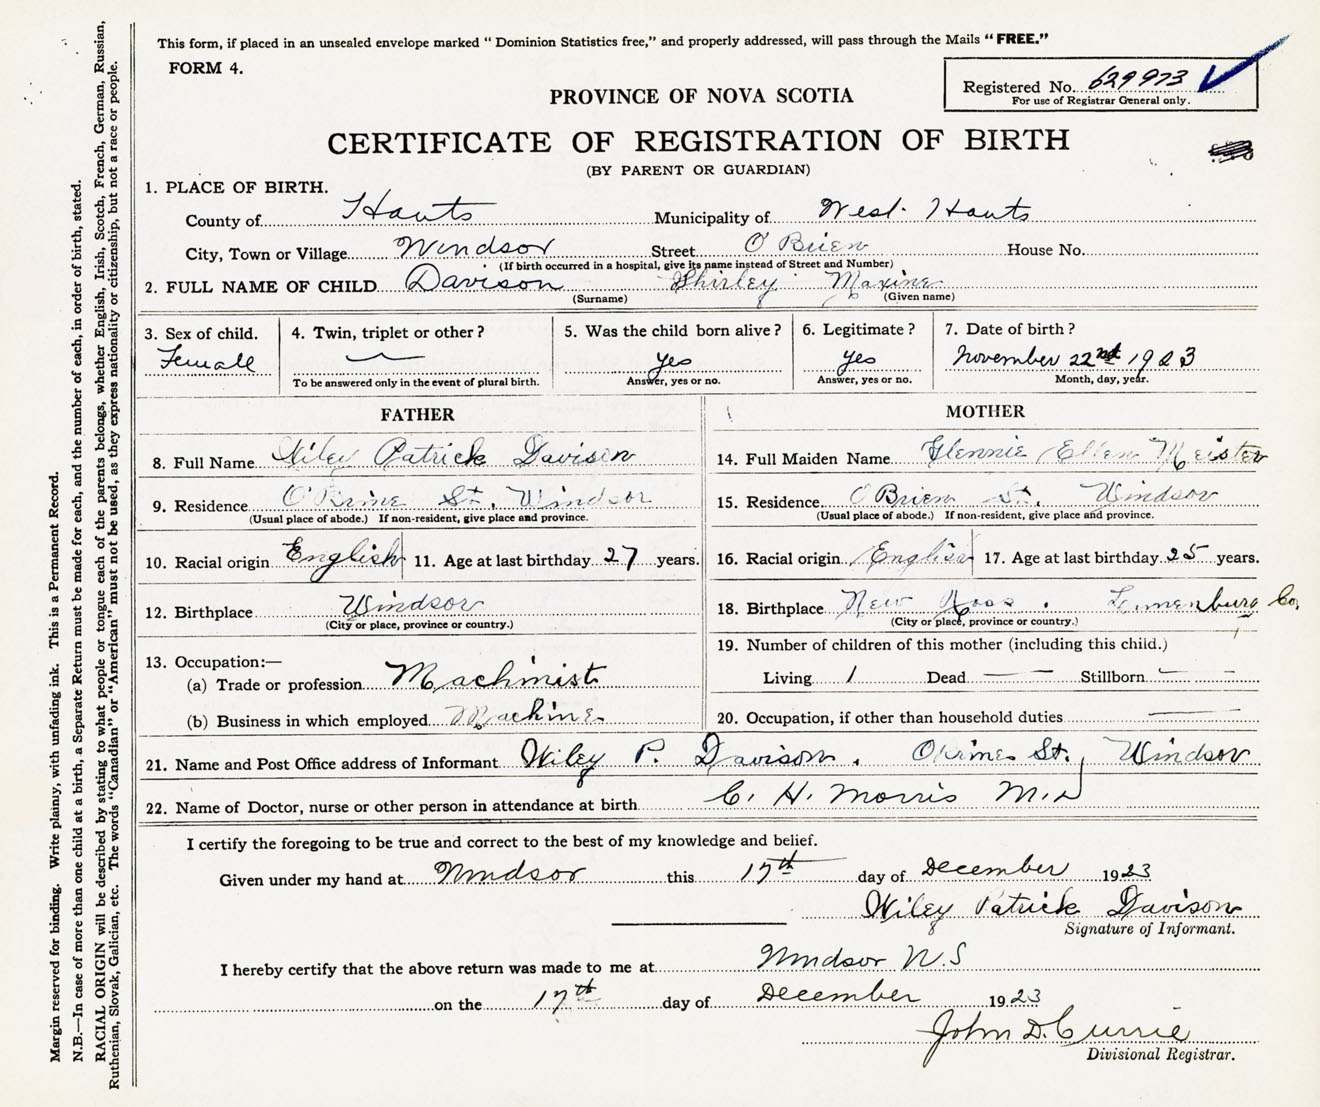 This form, if placed in an unsealed envelope marked “ Dominion Statistics free,” and properly addressed, will pass through the Mails “ FREE.”
FORM 4.
Registered No. 629973
For use of Registrar General only.
PROVINCE OF NOVA SCOTIA
CERTIFICATE OF REGISTRATION OF BIRTH
(BY PARENT OR GUARDIAN)
1. PLACE OF BIRTH.
County of Hants Municipality of West Hants
City, Town or Village Windsor Street O'Brien House No.
(If birth occurred in a hospital, give its name instead of Street and Number)
2. FULL NAME OF CHILD Davison Shirley Maxine
(Surname) (Given name)
3. Sex of child. 4. Twin, triplet or other ? 5. Was the child born alive ? 6. Legitimate ? 7. Date of birth ?
Female yes yes November 22nd 1923
To be answered only in the event of plural birth. Answer, yes or no. Answer, yes or no. Month, day, year.
FATHER MOTHER
8. Full Name Wiley Patrick Davison 14. Full Maiden Name Flennie Ellen Meister
9. Residence St. Windsor 15. Residence O'Brien St. Windsor
(Usual place of abode.) If non-resident, give place and province. (Usual place of abode.) If non-resident, give place and province.
10. Racial origin English 11. Age at last birthday 27 years. 16. Racial origin English 17. Age at last birthday 25 years.
12. Birthplace Windsor 18. Birthplace New Ross . Lunenburg Co.
(City or place, province or country.) (City or place, province or country.)
19. Number of children of this mother (including this child.)
13. Occupation:—
(a) Trade or profession Machinist Living 1 Dead — Stillborn —
(b) Business in which employed Machine 20. Occupation, if other than household duties —
21. Name and Post Office address of Informant Wiley P. Davison . St., Windsor
22. Name of Doctor, nurse or other person in attendance at birth C. H. Morris M.D
I certify the foregoing to be true and correct to the best of my knowledge and belief.
Given under my hand at Windsor this 17th day of December 1923
Wiley Patrick Davison
Signature of Informant.
I hereby certify that the above return was made to me at Windsor N.S
on the 17th day of December 1923
John D. Currie
Divisional Registrar.
Margin reserved for binding. Write plainly, with unfading ink. This is a Permanent Record.
N.B.—In case of more than one child at a birth, a Separate Return must be made for each, and the number of each, in order of birth, stated.
RACIAL ORIGIN will be described by stating to what people or tongue each of the parents belongs, whether English, Irish, Scotch, French, German, Russian,
Ruthenian, Slovak, Galician, etc. The words “Canadian” or “American” must not be used, as they express nationality or citizenship, but not a race or people.